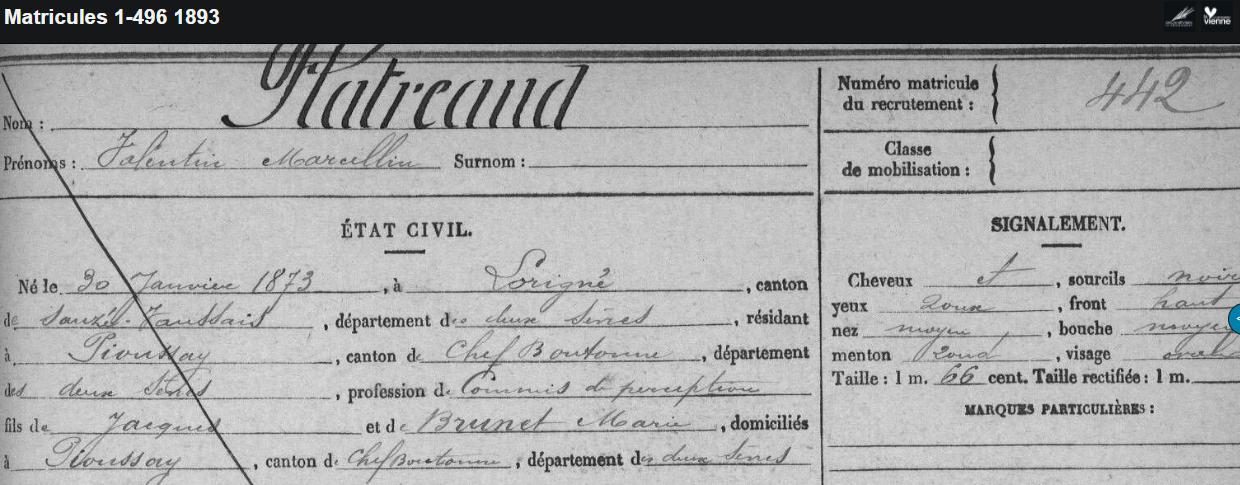 Matricules 1-496 1893
vienne
Nom : Platreaud
Prénoms : Valentin Marcellin Surnom :
Numéro matricule du recrutement : 442
Classe de mobilisation :
ÉTAT CIVIL.
Né le 30 Janvier 1873, à Lorigné, canton
de Sauzé-Vaussais, département des deux Sèvres, résidant
à Pioussay, canton de Chef Boutonne, département
des deux Sèvres, profession de Commis de perception
fils de Jacques et de Brunet Marie, domiciliés
à Pioussay, canton de Chef Boutonne, département des deux Sèvres
SIGNALEMENT.
Cheveux et, sourcils noirs
yeux roux, front haut
nez moyen, bouche moyenne
menton rond, visage ovale
Taille : 1 m. 66 cent. Taille rectifiée : 1 m.
MARQUES PARTICULIÈRES :